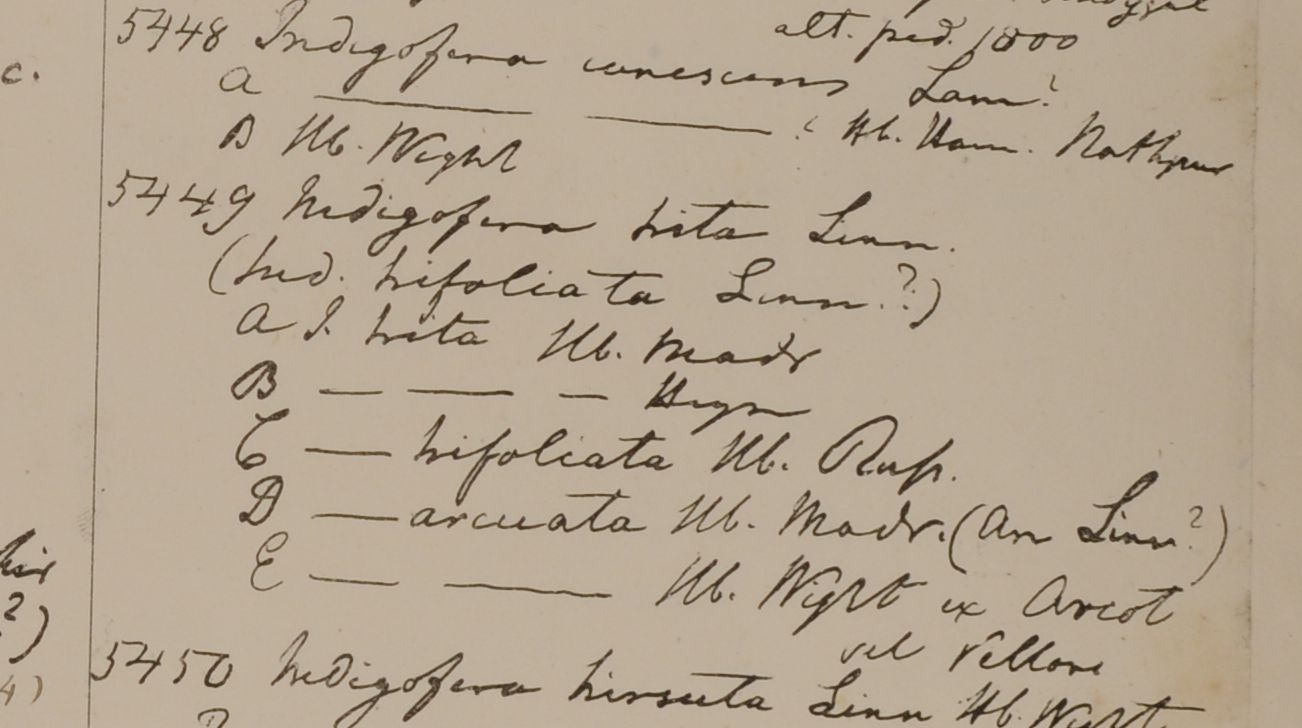 alt. ped. 1800
5448 Indigofera canescens Lam?
a — — ? Hb. Ham. Nathpur
B Hb. Wight
5449 Indigofera hita Linn.
(Ind. trifoliata Linn.?)
a I. hita Hb. Madr
B — — — Heyn
C — trifoliata Hb. Rup.
D — arcuata Hb. Madr. (an Linn?)
E — — Hb. Wight ex Arcot
vel Vellore
5450 Indigofera hirsuta Linn Hb. Wight